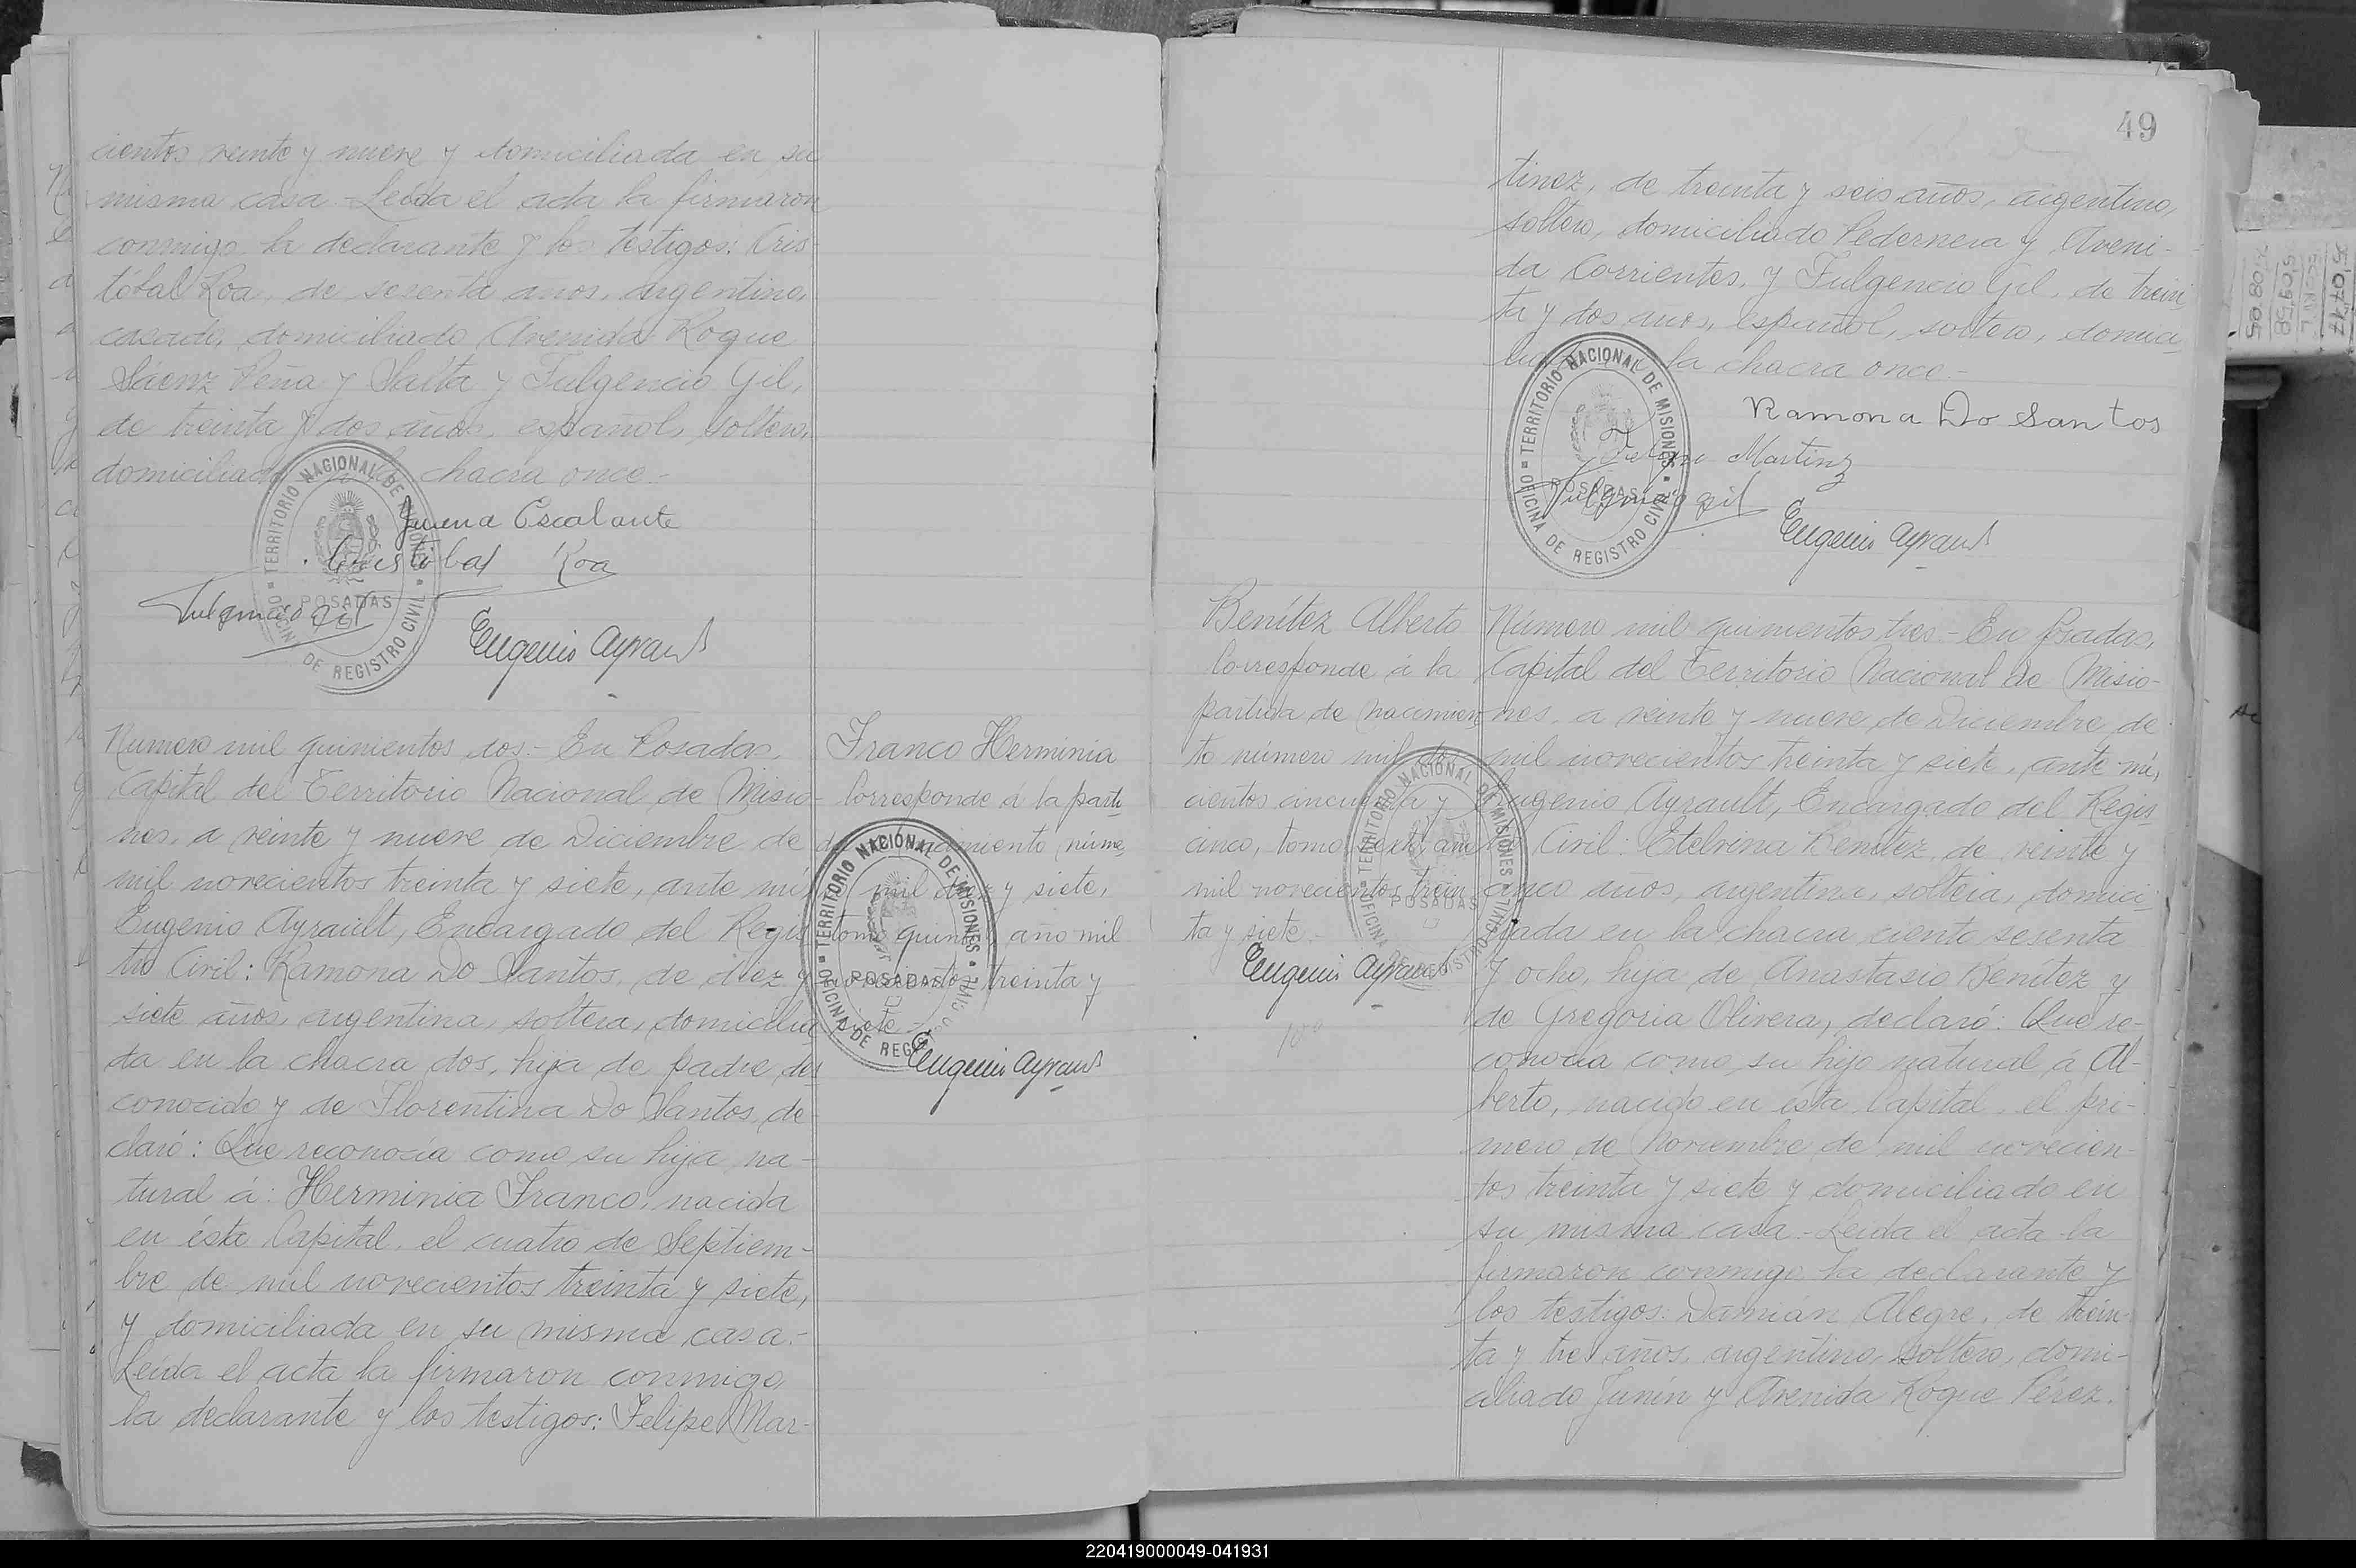 cientos veinte y nueve y domiciliada en su
misma casa.- Leída el acta la firmaron
conmigo la declarante y los testigos: Cris-
tóbal Roa, de sesenta años, argentino,
casado, domiciliado Avenida Roque
Sáenz Peña y Salta y Fulgencio Gil,
de treinta y dos años, español, soltero,
domiciliado chacra once.-
TERRITORIO NACIONAL DE MISIONES
POSADAS
OFICINA DE REGISTRO CIVIL
Juana Escalante
Cristobal Roa
Fulgencio Gil
Eugenio Ayrault
Número mil quinientos dos.- En Posadas,
Capital del Territorio Nacional de Misio-
nes, a veinte y nueve de Diciembre de
mil novecientos treinta y siete, ante mí,
Eugenio Ayrault, Encargado del Regis-
tro Civil: Ramona Do Santos, de diez y
siete años, argentina, soltera, domicilia-
da en la chacra dos, hija de padre des-
conocido y de Florentina Do Santos, de-
claró: Que reconocía como su hija na-
tural á: Herminia Franco, nacida
en ésta Capital, el cuatro de Septiem-
bre de mil novecientos treinta y siete,
y domiciliada en su misma casa.-
Leída el acta la firmaron conmigo,
la declarante y los testigos: Felipe Mar-
Franco Herminia
Corresponde á la parti-
da de nacimiento núme-
ro mil doce y siete,
tomo quinto, año mil
novecientos treinta y
siete.-
TERRITORIO NACIONAL DE MISIONES
POSADAS
OFICINA DE REGISTRO CIVIL
Eugenio Ayrault
49
tinez, de treinta y seis años, argentino,
soltero, domiciliado Pedernera y Aveni-
da Corrientes, y Fulgencio Gil, de trein-
ta y dos años, español, soltero, domici-
la chacra once.-
TERRITORIO NACIONAL DE MISIONES
POSADAS
OFICINA DE REGISTRO CIVIL
Ramona Do Santos
Felipe Martinz
Fulgencio gil
Eugenio Ayrault
Benítez Alberto
Corresponde á la
partida de nacimien-
to número mil dos-
cientos cincuenta y
cinco, tomo sexto, año
mil novecientos trein-
ta y siete.-
TERRITORIO NACIONAL DE MISIONES
POSADAS
OFICINA DE REGISTRO CIVIL
Eugenio Ayrault
Número mil quinientos tres.- En Posadas,
Capital del Territorio Nacional de Misio-
nes, a veinte y nueve de Diciembre de
mil novecientos treinta y siete, ante mí,
Eugenio Ayrault, Encargado del Regis-
tro Civil: Etelvina Benítez, de veinte y
cinco años, argentina, soltera, domici-
liada en la chacra ciento sesenta
y ocho, hija de Anastasio Benítez y
de Gregoria Olivera, declaró: Que re-
conocía como su hijo natural á Al-
berto, nacido en ésta Capital, el pri-
mero de Noviembre de mil novecien-
tos treinta y siete y domiciliado en
su misma casa.- Leída el acta la
firmaron conmigo la declarante y
los testigos: Damián Alegre, de trein-
ta y tres años, argentino, soltero, domi-
ciliado Junín y Avenida Roque Pérez.
220419000049-041931